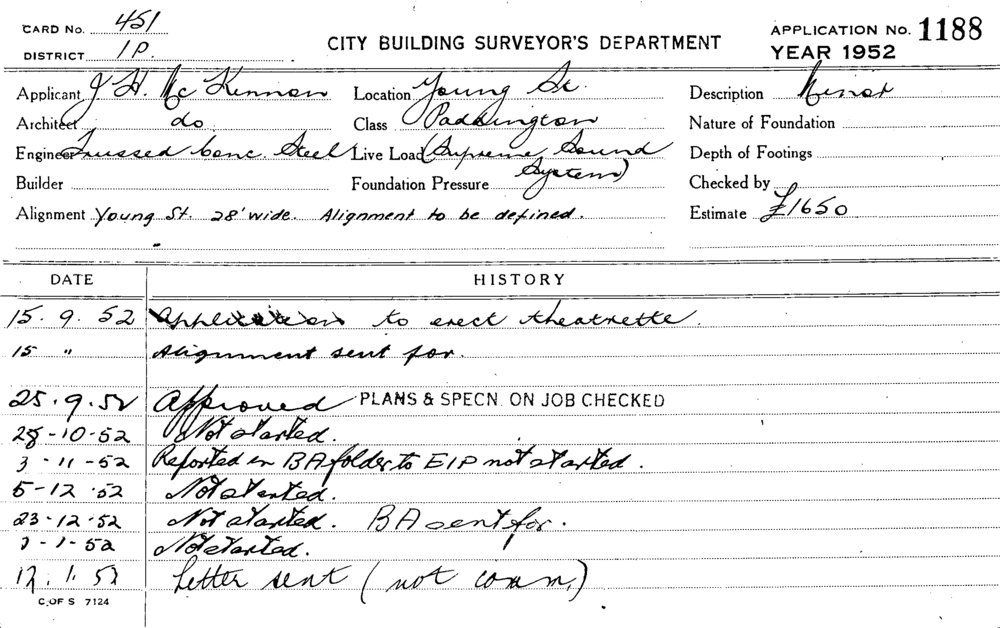 CARD No. 451
DISTRICT 1P.
CITY BUILDING SURVEYOR'S DEPARTMENT
APPLICATION No. 1188
YEAR 1952
Applicant J H. Mc Kinnon Location Young St. Description Minor
Architect do Class Paddington Nature of Foundation
Engineer Trussed Conc. Steel Live Load (Supreme Sound Depth of Footings
Builder Foundation Pressure System) Checked by
Alignment Young St. 28' wide. Alignment to be defined. Estimate £1650
DATE HISTORY
15. 9. 52 Application to erect theatrette.
15 " Alignment sent for.
25.9.52 Approved PLANS & SPECN. ON JOB CHECKED
28-10-52 Not started.
3-11-52 Reported in BA folder to E1P not started.
5-12-52 Not started.
23-12-52 Not started. BA sent for.
-1-52 Not started.
12.1.52 Letter sent (not comm.)
C. OF S 7124